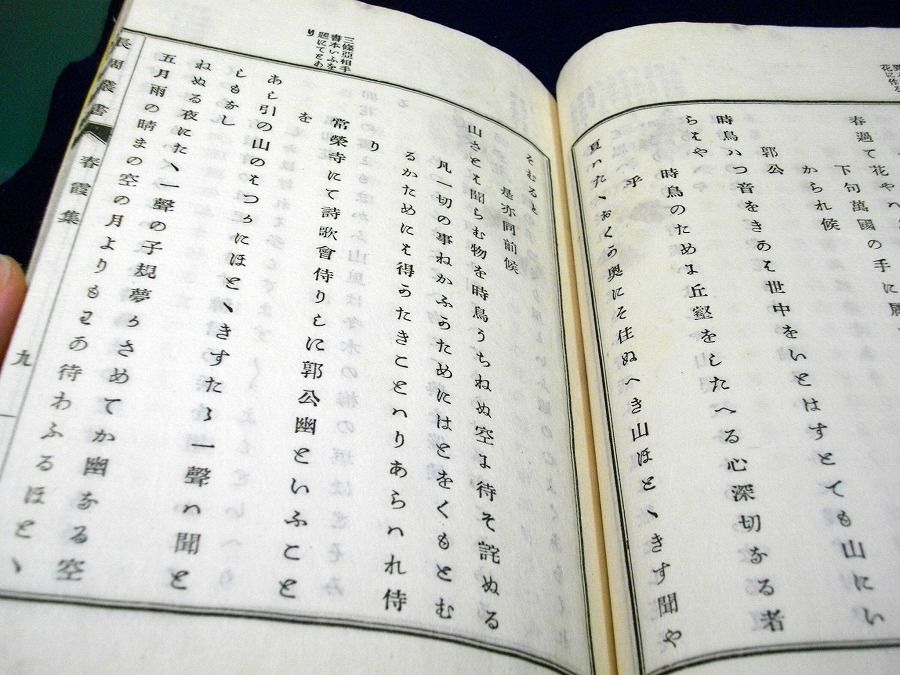 春過て花やハ
下句萬國の手に
かられ候
郭公
時鳥ハつ音をきゝそ世中をいとはすとても山にい
らそや
時鳥のためよ丘壑をしたへる心深切なる者
乎
夏ハたゝおくの奥にそ住ぬへき山ほとゝきす聞や
そむると
是亦同前候
山さとそ聞らむ物を時鳥うちねぬ空よ待そ詫ぬる
凡一切の事ねかふのためにはとをくもとむ
るかためにそ得のたきことハりあらハれ侍
り
常榮寺にて詩歌會侍りしに郭公幽といふこと
を
あし引の山のそつのにほとゝきすたゝ一聲ハ聞と
しもなし
ねぬる夜にたゝ一聲の子規夢のさめてか幽なる空
五月雨の晴まの空の月よりもその待わふるほとゝ
三條亞相手
書本いふを
題にてとあ
り
長周叢書
春霞集
九